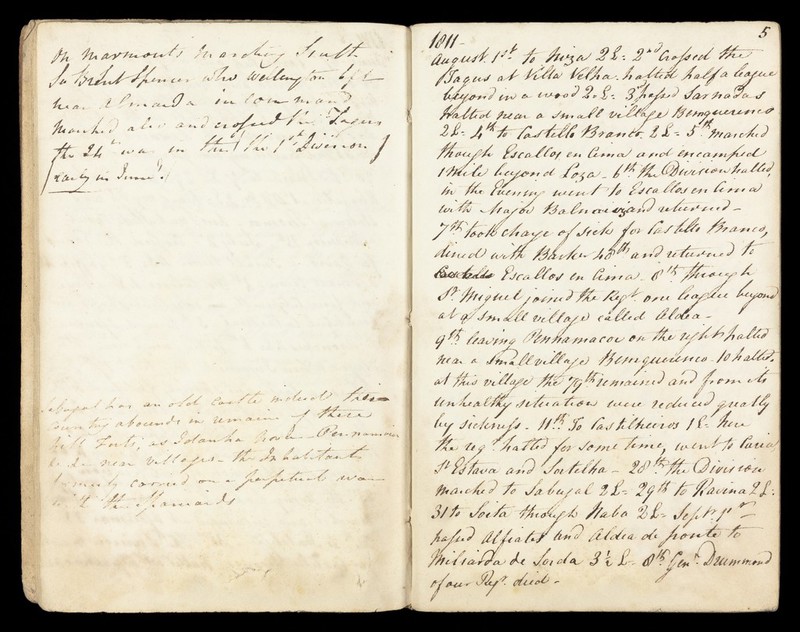 On Marmonts marching South
Sir Brent Spencer who Wellington left
near Almeida in command
marched also and crossed the Tagus
the 24th was in the 1st Division
early in June.
Sabugal has an old castle indeed this
Country abounds in remains of these
Hill Forts, as Idanha Nova Pennamacor
near villages the Inhabitants
formerly carried on a perpetual war
with the Spaniards
5
1811 -
August. 1st. to Niza 2 L= 2nd Crossed the
Tagus at Villa Velha. halted half a league
beyond in a wood 2 L= 3d passed Sarnadas
halted near a small village Bemquerenca
2 L= 4th to Castello Branco. 2 L= 5th. marched
though Escallos en Cima and encamped
1 Mile beyond Loza. 6th. the Division halted,
in the Evening went to Escallos en Cima
with Major and returned -
7th. took charge of sick for Castello Branco,
dined with Barker 48th and returned to
Escallos en Cima. 8th. through
St. Miguel joined the Regt. one league beyond
at a small village called Aldea -
9th. leaving Pennamacor on the right halted
near a small village Bemquerenca. 10 halted.
at this village the 79th remained and from its
unhealthy situation were reduced greatly
by sickness. 11th. To Castilheiros 1 L- here
the regt. halted for some time, went to Caria
St. Estava and Sortelha - 28th. the Division
marched to Sabugal 2 L= 29th to Ravina 2 L.
31 to Soita through Naba 2 L= Septr. 1st
passed Alfiates and Aldea de ponte to
Miliarda de Sorda 3 1/2 L. 8th. Genl. Drummond
of our Regt. died -